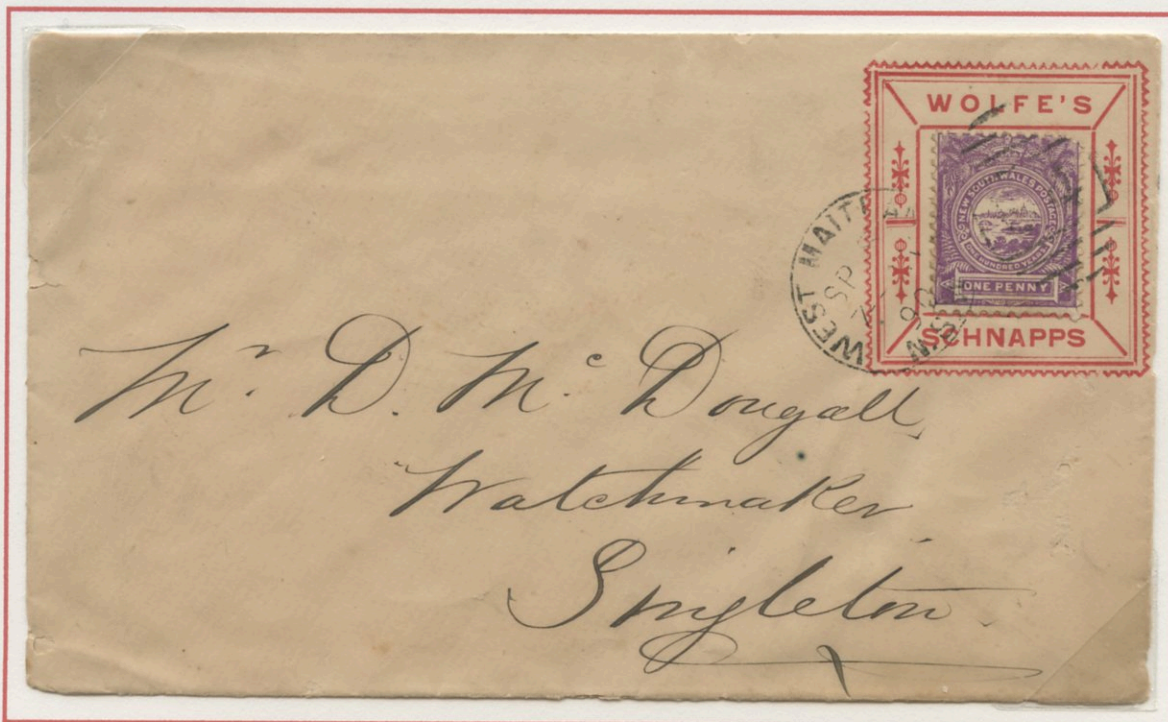 WOLFE'S
NEW SOUTH WALES POSTAGE
ONE HUNDRED YEARS
ONE PENNY
SCHNAPPS
WEST MAITLAND
SP
90
N.S.W
Mr. D. McDougall,
Watchmaker
Singleton